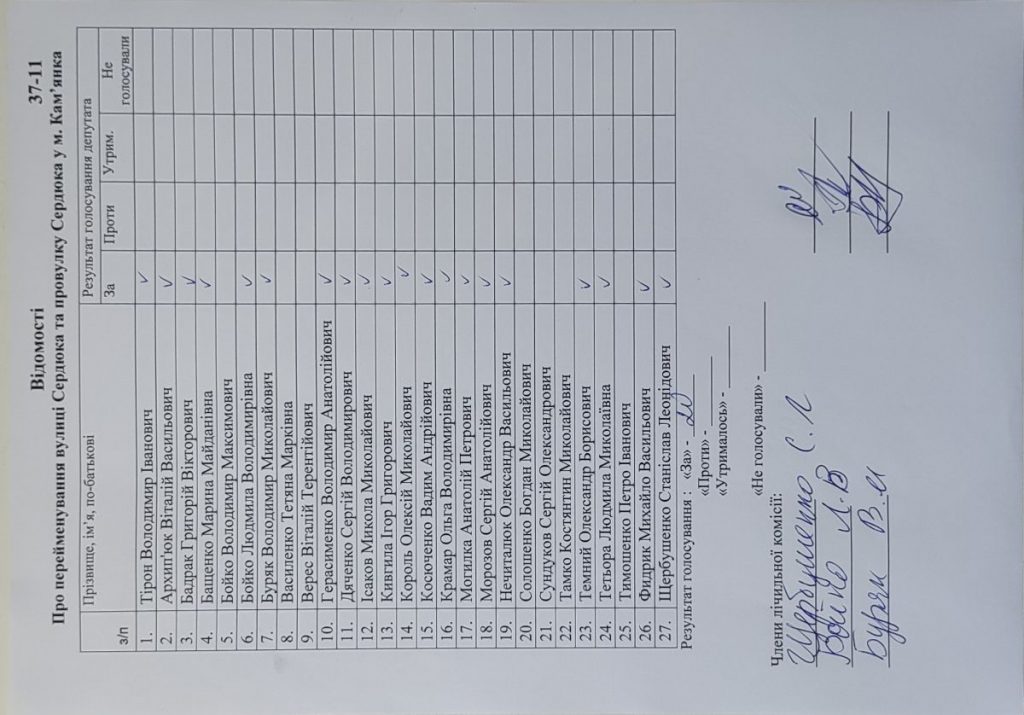 Відомості 37-11
Про перейменування вулиці Сердюка та провулку Сердюка у м. Кам'янка
з/п Прізвище, ім'я, по-батькові Результат голосування депутата
За Проти Утрим. Не голосували
1. Тірон Володимир Іванович ✓
2. Архип'юк Віталій Васильович ✓
3. Бадрак Григорій Вікторович ✓
4. Бащенко Марина Майданівна ✓
5. Бойко Володимир Максимович
6. Бойко Людмила Володимирівна ✓
7. Буряк Володимир Миколайович ✓
8. Василенко Тетяна Марківна
9. Верес Віталій Терентійович
10. Герасименко Володимир Анатолійович ✓
11. Дяченко Сергій Володимирович ✓
12. Ісаков Микола Миколайович ✓
13. Кивгила Ігор Григорович ✓
14. Король Олексій Миколайович ✓
15. Косюченко Вадим Андрійович ✓
16. Крамар Ольга Володимирівна ✓
17. Могилка Анатолій Петрович ✓
18. Морозов Сергій Анатолійович ✓
19. Нечиталюк Олександр Васильович ✓
20. Солошенко Богдан Миколайович
21. Сундуков Сергій Олександрович
22. Тамко Костянтин Миколайович
23. Темний Олександр Борисович ✓
24. Тетьора Людмила Миколаївна ✓
25. Тимошенко Петро Іванович
26. Фидрик Михайло Васильович ✓
27. Щербушенко Станіслав Леонідович ✓
Результат голосування : «За» - 20
«Проти» -
«Утрималось» -
«Не голосували» -
Члени лічильної комісії:
Щербушенко С. Л
Бойко Л. В
Буряк В. М